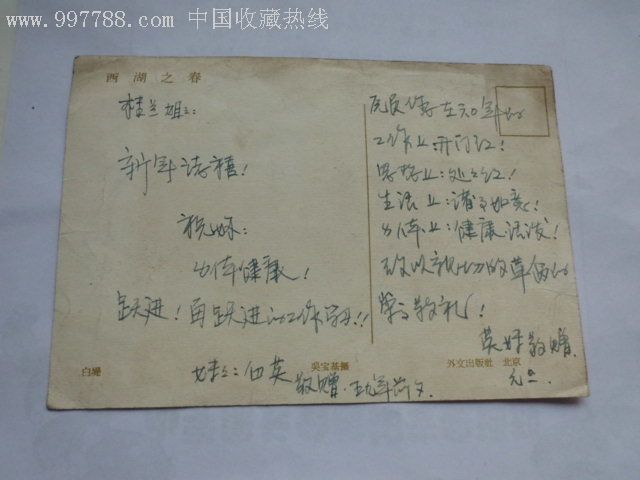 www.997788.com 中国收藏热线
西湖之春
桂兰姐:
新年诗禧!
祝妳:
身体健康!
跃进!再跃进的工作学习!!
妹:四英
敬赠.
在六0年的
工作上:开门红!
思想上:处处红!
生活上:诸事如意!
身体上:健康活泼!
致以亲切的革命的
崇高敬礼!
英妹敬赠.
元旦.
白堤
吴宝基摄
外文出版社 北京